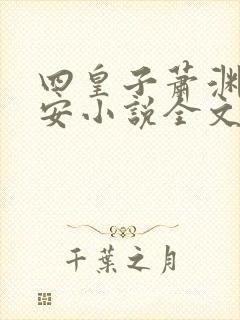 四皇子萧渊
安小説全文
千葉之月